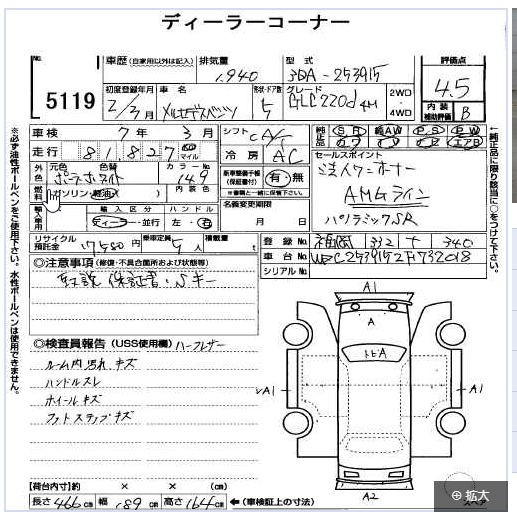 ディーラーコーナー
No.
5119
車歴 (自家用以外は記入)
排気量
1,940
型式
3DA-253915
評価点
4.5
初度登録年月
2/3月
車名
メルセデスベンツ
形状・ドア数
5
グレード
GLC220d 4M
2WD
4WD
内装
補助評価
B
車検 7年 3月
シフト
走行 81,827 マイル
冷房 AC
純正品 SR AW PS PW
カワ ナビ TV エアB
外色 元色 ポーラーホワイト 色替
カラーNo. 149
内装色
燃料 ガソリン・軽油
新車整備手帳
(保証書付)
有・無
※書類と一緒に保管下さい。
セールスポイント
法人ワンオーナー
AMGライン
パノラミックSR
輸入車用 輸入区分 ハンドル
ディーラー・並行 左・右
名義変更期限
月 日
リサイクル預託金 17,580円
乗車定員 5人
積載量 t
登録No. 福岡 332 ナ 340
車台No. WDC2539152F732018
シリアルNo.
◎注意事項 (修復・不具合箇所および状態等)
取説 保証書・Sキー
◎検査員報告 (USS使用欄) ハーフレザー
ルーム内汚れ、キズ
ハンドルスレ
ホイールキズ
フットステップキズ
A1
A
トビA
A1
A1
A2
スペア
【荷台内寸】約 × × (cm)
長さ 466cm 幅 189cm 高さ 164cm
←(車検証上の寸法)
※必ず油性ボールペンをご使用下さい。水性ボールペンは使用できません。
←純正品に限り該当に○をつけて下さい。
拡大